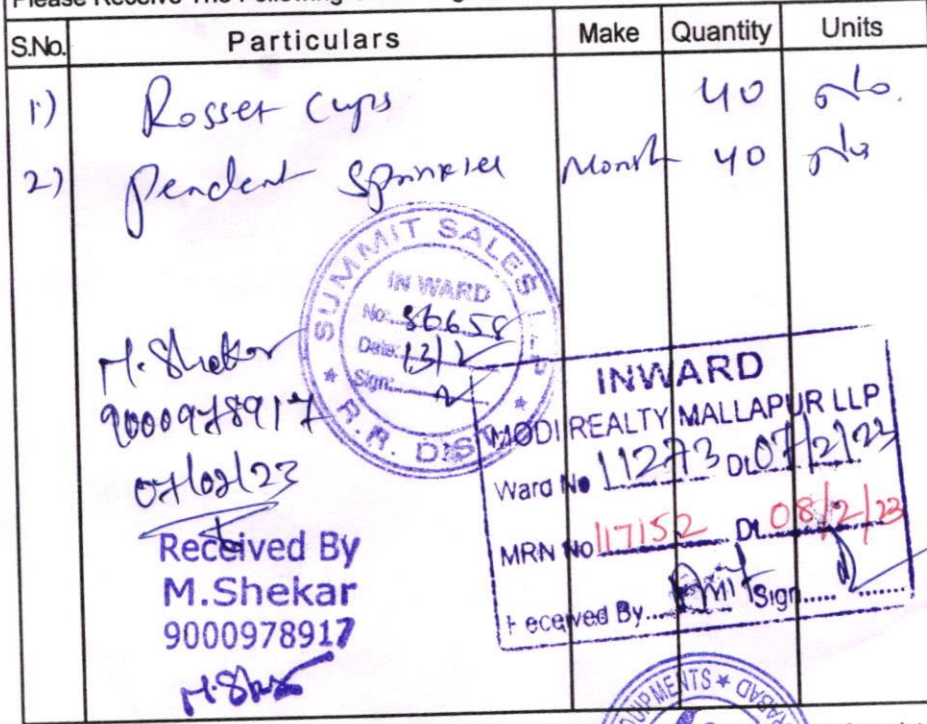 Please Receive The Following
S.No. Particulars Make Quantity Units
1) Rosset Cups 40 No.
2) Pendent Sprinkler 40 No
SUMMIT SALES LLP
IN WARD
No: 86658
Date: 13/2
Sign:
R.R. DIST
M. Shekar
9000978917
07/02/23
Received By
M.Shekar
9000978917
INWARD
MODI REALTY MALLAPUR LLP
Ward No 11273 Dt. 07/2/23
MRN No 117152 Dt. 08/2/23
Received By.... Amit Sign.....